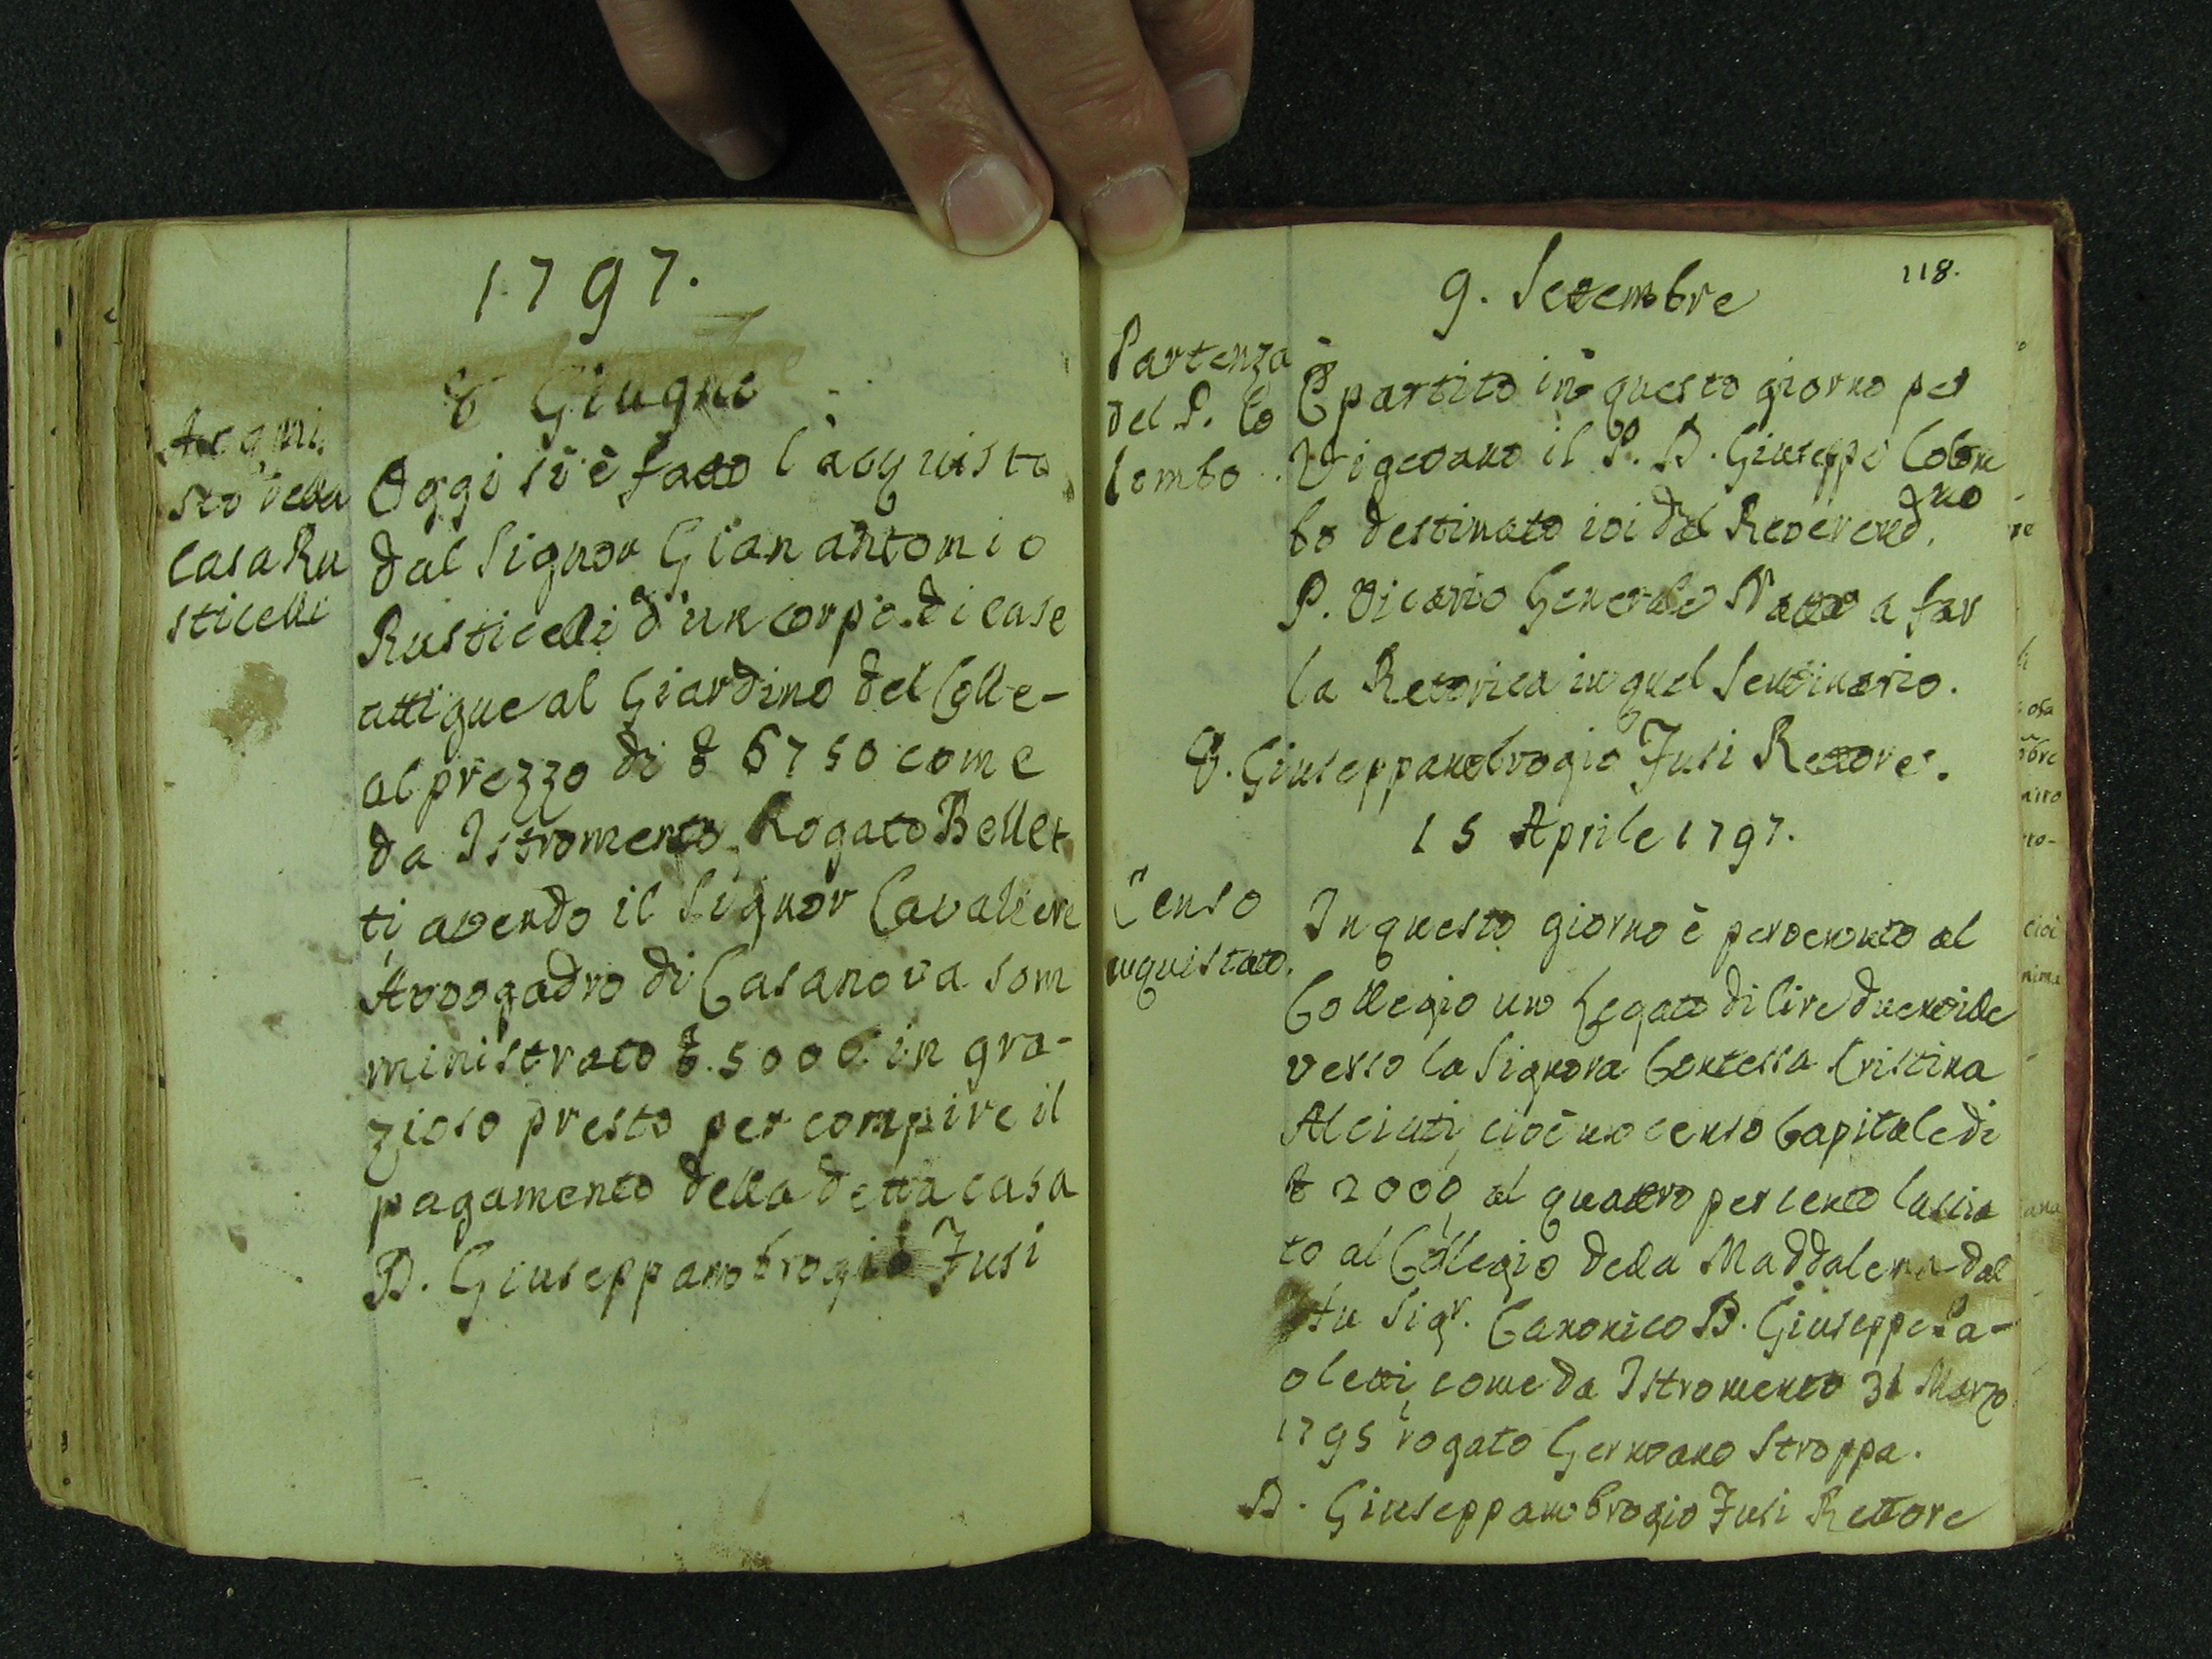 1797.
8 Giugno
Acqui
sto della
Casa Ru
sticelli
Oggi si è fatto l'acquisto
dal Signor Gianantonio
Rusticelli d'un corpo di case
attigue al Giardino del Colle-
al prezzo di £ 6750 come
da Istromento Rogato Bellet
ti avendo il Signor Cavaliere
Avvogadro di Casanova som
ministrato £. 5000 in gra-
zioso presto per compire il
pagamento della detta casa
D. Giuseppambrogio Fusi
118.
9. Settembre
Partenza
del P. Co
lombo
È partito in questo giorno per
Vigevano il P. D. Giuseppe Colom
bo destinato ivi dal Reverend.mo
P. Vicario Generale Natta a far
la Rettorica in quel Seminario.
D. Giuseppambrogio Fusi Rettore.
15 Aprile 1797.
Censo
acquistato.
In questo giorno è pervenuto al
Collegio un Legato di lire duemile
verso la Signora Contessa Cristina
Alciati, cioè un censo Capitale di
£ 2000, al quattro per cento lascia
to al Collegio della Maddalena dal
fu Sigr. Canonico D. Giuseppe Pa-
oletti, come da Istromento 31 Marzo
1795 rogato Germano Stroppa.
D. Giuseppambrogio Fusi Rettore